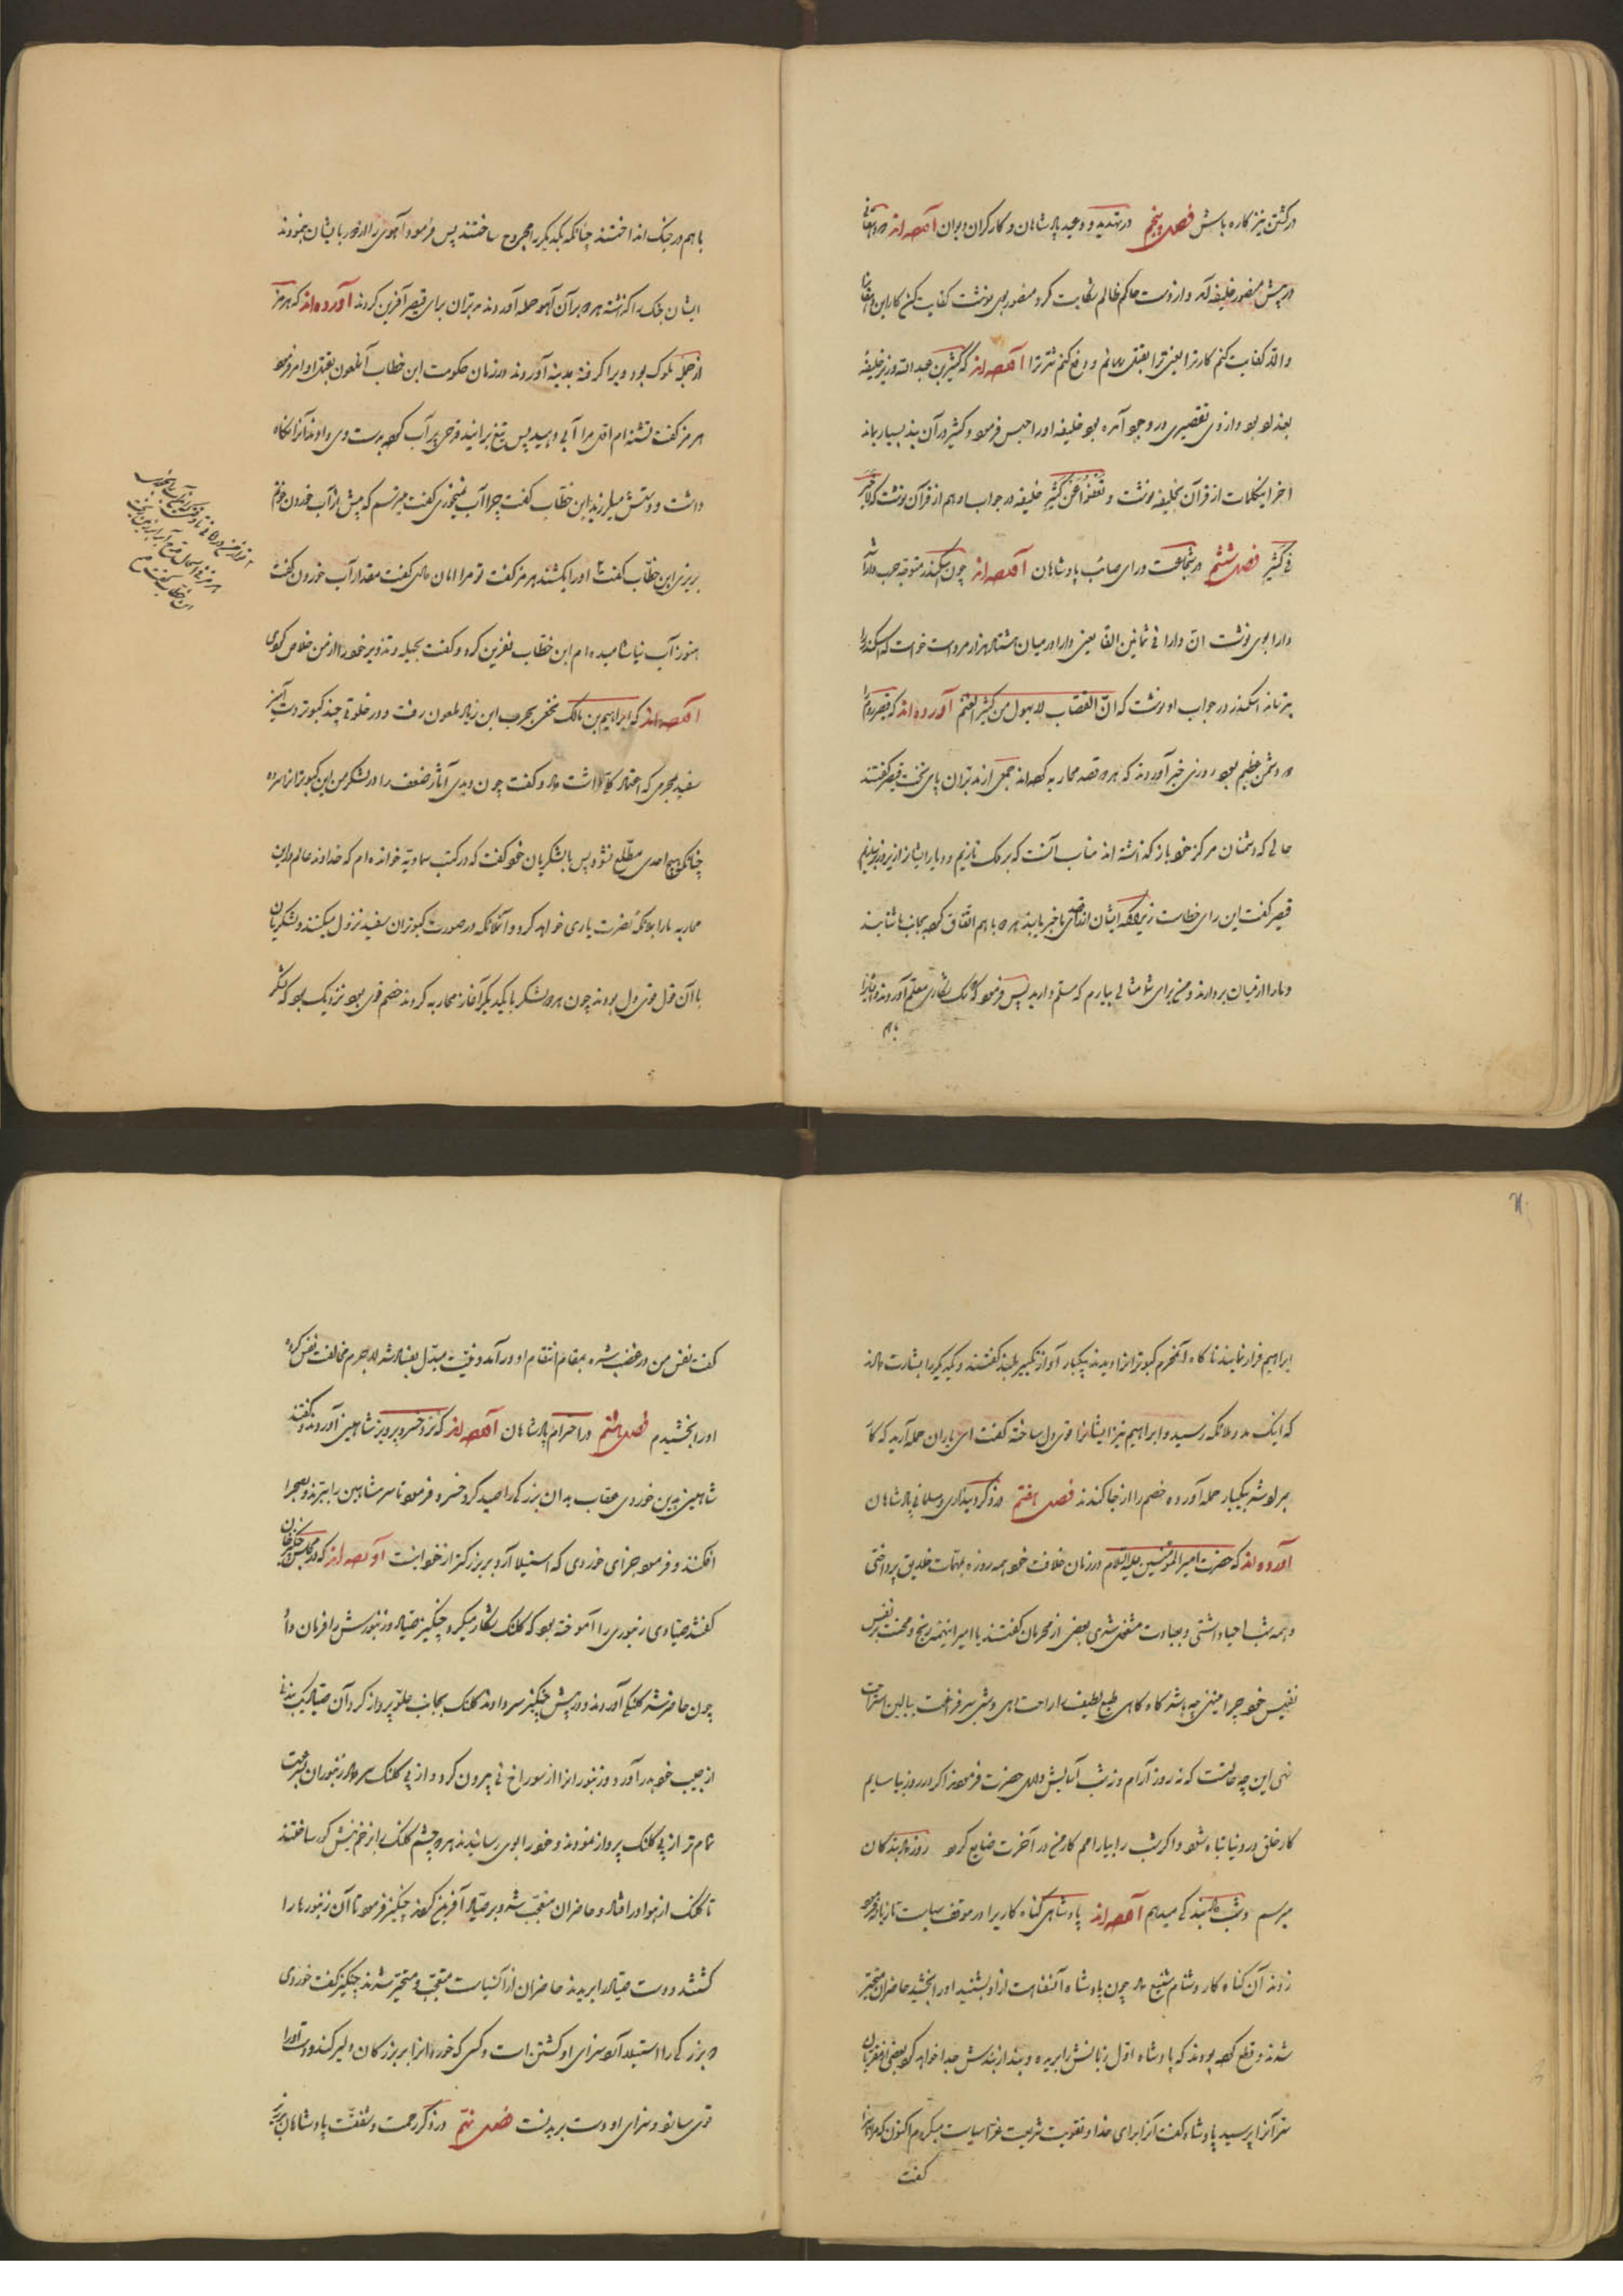 در کشتن نیز کاره باش فصل پنجم در تهدید و وعید پادشاهان و کارکران دیوان آورده‌اند
در پیش منصور خلیفه آمد و از دست حاکم ظالم شکایت کرد منصور بوی نوشت کفایت کن کار این
والا کفایت کنم کار ترا یعنی و دفع کنم شر ترا آورده‌اند که کثیر بن عبد الله وزیر خلیفه
بغداد بود و از وی تقصیری در وجود آمده بود خلیفه او را حبس فرمود و کثیر در آن بند بسیار بماند
آخر این کلمات از قرآن بخلیفه نوشت و نعفوا عن کثیر خلیفه در جواب او هم از قرآن نوشت که لا خیر
فی کثیر فصل ششم در شجاعت و رای صائب پادشاهان آورده‌اند چون اسکندر متوجه حرب دارا شد
دارا بوی نوشت ان دارا فی ثمانین الفا یعنی دارا در میان هشتاد هزار مرد است خواست که اسکندر را
بترساند اسکندر در جواب او نوشت که ان القصاب لا یهول من کثیر الغنم آورده‌اند که قیصر روم را
دو دشمن عظیم بود روزی خبر آوردند که هر دو قصد محاربه کرده‌اند جمعی از مدبران پای تخت قیصر گفتند
حالی که دشمنان مرکز خود باز گذاشته اند مناسب آنست که بر ملک تازیم و دیار ایشان را زیر و زبر سازیم
قیصر گفت این رای خطاست زیرا که ایشان با خبر یابند هر دو با هم اتفاق کرده بجانب ما شتابند
و ما را از میان بردارند و من برای شما مثالی بیارم که مسلم دارید پس فرمود که سگ شکاری معلم آوردند و ایشان را
باهم
باهم در جنگ انداختند چنانکه یکدیگر را مجروح ساختند پس فرمود آهوی را از دور بایشان بنمودند
ایشان جنگ را گذاشته هر دو بر آن آهو حمله آوردند مدبران برای قیصر آفرین کردند آورده‌اند که هرمز
از جمله ملوک بود ویرا گرفته بمدینه آوردند در زمان حکومت ابن خطاب آنملعون بقتل او امر فرمود
هرمز گفت تشنه‌ام اول مرا آبی دهید پس تیغ برانید قدحی پر آب کرده بدست وی دادند آنرا نگاه
داشت و دستش میلرزید ابن خطاب گفت چرا آب نمیخوری گفت میترسم که پیش از آب خوردن خونم
بریزی ابن خطاب گفت تا او را نکشند هرمز گفت تو مرا امان دادی گفت مقدار آب خوردن گفت
هنوز آب نیاشامیده‌ام ابن خطاب نفرین کرد و گفت بحیله و تزویر خود را از من خلاص کردی
آورده‌اند که ابراهیم بن مالک نخعی بحرب ابن زیاد ملعون رفت و در خلوتی چند کبوتر دست آموز
سفید بمحرمی که اعتماد کلی داشت داد و گفت چون دیدی آثار ضعف را در لشکر من این کبوتران را سر ده
چنانکه هیچ احدی مطلع نشود پس با لشکریان خود گفت که در کتب سماویه خوانده‌ام که خداوند عالم در این
محاربه ما را بملائکه نصرت یاری خواهد کرد و آنملائکه در صورت کبوتران سفید نزول میکنند و لشکریان
با آن قول قوی دل بودند چون هر دو لشکر با یکدیگر آغاز محاربه کردند خصم قوی بود نزدیک بود که لشکر
ابراهیم فرار نمایند ناگاه آنمحرم کبوتران را پرانید یکبار آواز تکبیر بلند گفتند و یکدیگر را بشارت دادند
که اینک مدد ملائکه رسید و ابراهیم نیز ایشانرا قوی دل ساخته گفت ای یاران حمله آرید که کار
بمراد شد بیکبار حمله آورده خصم را از جا کندند فصل هفتم در ذکر دینداری و مسلمانی پادشاهان
آورده‌اند که حضرت امیر المؤمنین علیه السلام در زمان خلافت خود همه روزه بمهمات خلایق پرداختی
و همه شب احیا داشتی و بعبادت مشغول شدی بعضی از محرمان گفتند یا امیر اینهمه رنج و محنت بر نفس
نفیس خود چرا مینهی چه باشد گاه گاهی طبع لطیف را راحت دهی و شبی سر فراغت ببالین استراحت
نهی این چه حالتست که نه روز آرام و نه شب آسایش داری حضرت فرمودند اگر در روز بیاسایم
کار خلق در دنیا تباه شود و اگر شب را بیارامم کار من در آخرت ضایع گردد روز داد بندگان
میرسم و شب داد بندگی میدهم آورده‌اند پادشاهی گناه کاری را در موقف سیاست تازیانه فرمود
زدند آن گناه کار دشنام شنیع داد چون پادشاه آن سفاهت از او بشنید او را بخشید حاضران متحیر
شدند و قطع کرده بودند که پادشاه اول زبانش را بریده و بند از بندش جدا خواهد کرد بعضی از مقربان
سر آنرا پرسید پادشاه گفت آنرا برای خدا و تقویت شریعت غرا سیاست میکردم اکنون که مرا
گفت
گفت نفس من در غضب شده بمقام انتقام او در آمد و نیت مبدل بفساد شد لاجرم مخالفت نفس کرده
او را بخشیدم فصل هشتم در احترام پادشاهان آورده‌اند که نزد خسرو پرویز شاهینی آوردند و گفتند
شاهین بدین خوردی عقاب بدان بزرگی را صید کرد خسرو فرمود تا سر شاهین را ببرند و بصحرا
افکنند و فرمود جزای خوردی که استیلا آرد بر بزرگتر از خود اینست آورده‌اند که در مجلس چنگیز خان
گفتند صیادی زنبوری را آموخته بود که کلنگ شکار میکرد چنگیز صیاد و زنبورش را فرمان داد
چون حاضر شد کلنگی آوردند و در پیش چنگیز سر دادند کلنگ بجانب علو پرواز کرد آن صیاد
از جیب خود بدر آورد و زنبوران را از سوراخ نی بیرون کرد و از پی کلنگ سر داد زنبوران بسرعت
تمام تر از پی کلنگ پرواز نمودند و خود را بوی رسانیدند هر دو چشم کلنگ را بزخم نیش کور ساختند
تا کلنگ از هوا در افتاد و حاضران متعجب شدند و بر صیاد آفرین کردند چنگیز فرمود تا آن زنبورها را
کشتند و دست صیاد را بریدند حاضران از آن سیاست متعجب و متحیر شدند چنگیز گفت خوردی
که بر بزرگی را استیلا آرد سزای او کشتن است و کسی که خوردان را بر بزرگان دلیر کند و دست او را
قوی سازد سزای او دست بریدنست فصل نهم در ذکر رحمت و شفقت پادشاهان